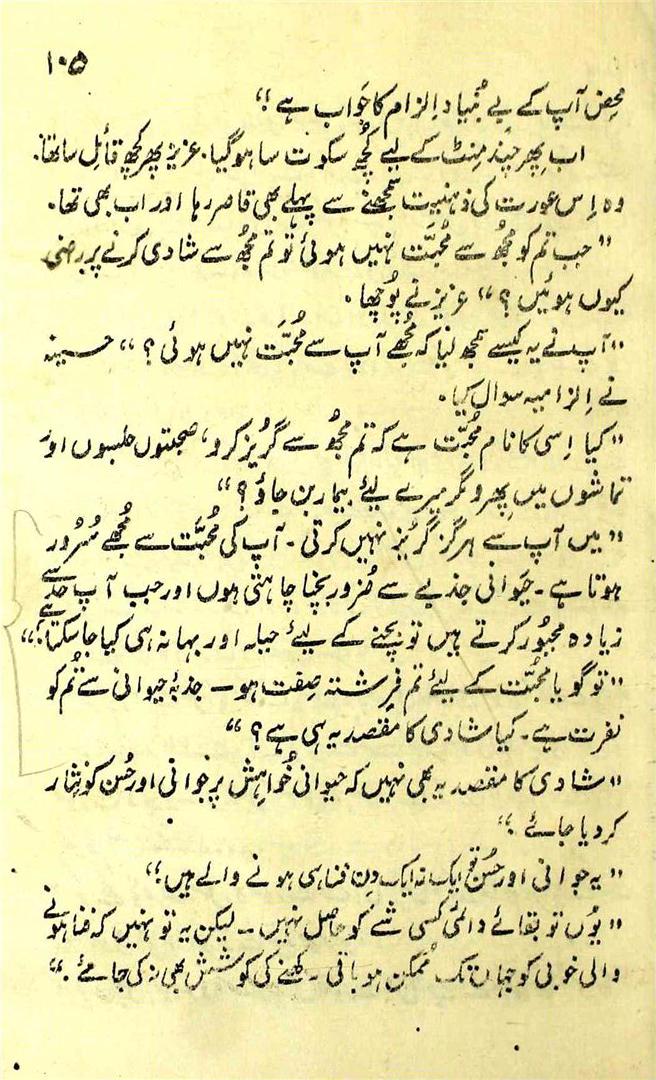 ۱۰۵
محض آپ کے بے بُنیاد اِلزام کا جَواب ہے ؛“
اب پھر چند مِنٹ کے لیے کُچھ سکوت سا ہو گیا۔ عزیز پھر کچھ قائل سا تھا۔
وہ اِس عورت کی ذہنیت سمجھنے سے پہلے بھی قاصر رہا اور اب بھی تھا۔
”جب تم کو مجُھ سے مُحبَّت نہیں ہوئی تو تم مجُھ سے شادی کرنے پر راضی
کیوں ہوئیں ؟“ عزیز نے پُوچھا۔
”آپ نے یہ کیسے سمجھ لیا کہ مُجھے آپ سے مُحبَّت نہیں ہوئی ؟“ حسینہ
نے اِلزامیہ سوال کیا۔
”کیا اِسی کا نام مُحبّت ہے کہ تم مجُھ سے گُریز کرو، صحبتوں جلسوں اور
تماشوں میں پِھرو مگر میرے لیئے بیمار بن جاؤ ؟“
”میں آپ سے ہرگز گُریز نہیں کرتی ۔ آپ کی مُحبَّت سے مُجھے سُرُور
ہوتا ہے ۔ حَیوانی جذبے سے ضُرور بچنا چاہتی ہوں اور جب آپ حد سے
زیادہ مجبُور کرتے ہیں تو بچنے کے لیئے حیلہ اور بہانہ ہی کیا جا سکتا ہے؛“
”تو گویا مُحبّت کے لیئے تم فرِشتہ صِفت ہو ۔ جذبۂ حیوانی سے تُم کو
نفرت ہے ۔ کیا شادی کا مقصد یہ ہی ہے ؟“
”شادی کا مقصد یہ بھی نہیں کہ حیوانی خُواہِش پر جوانی اور حُسن کو نِثار
کر دیا جائے ؛“
”یہ جوانی اور حُسن تو ایک نہ ایک دِن فنا ہی ہونے والے ہیں ؛“
”یُوں تو بقائے دائمی کسی شے کو حاصِل نہیں ۔ لیکن یہ تو نہیں کہ فنا ہونے
والی خوبی کو جہاں تک مُمکن ہو باقی رکھنے کی کوشِش بھی نہ کی جائے ؛“